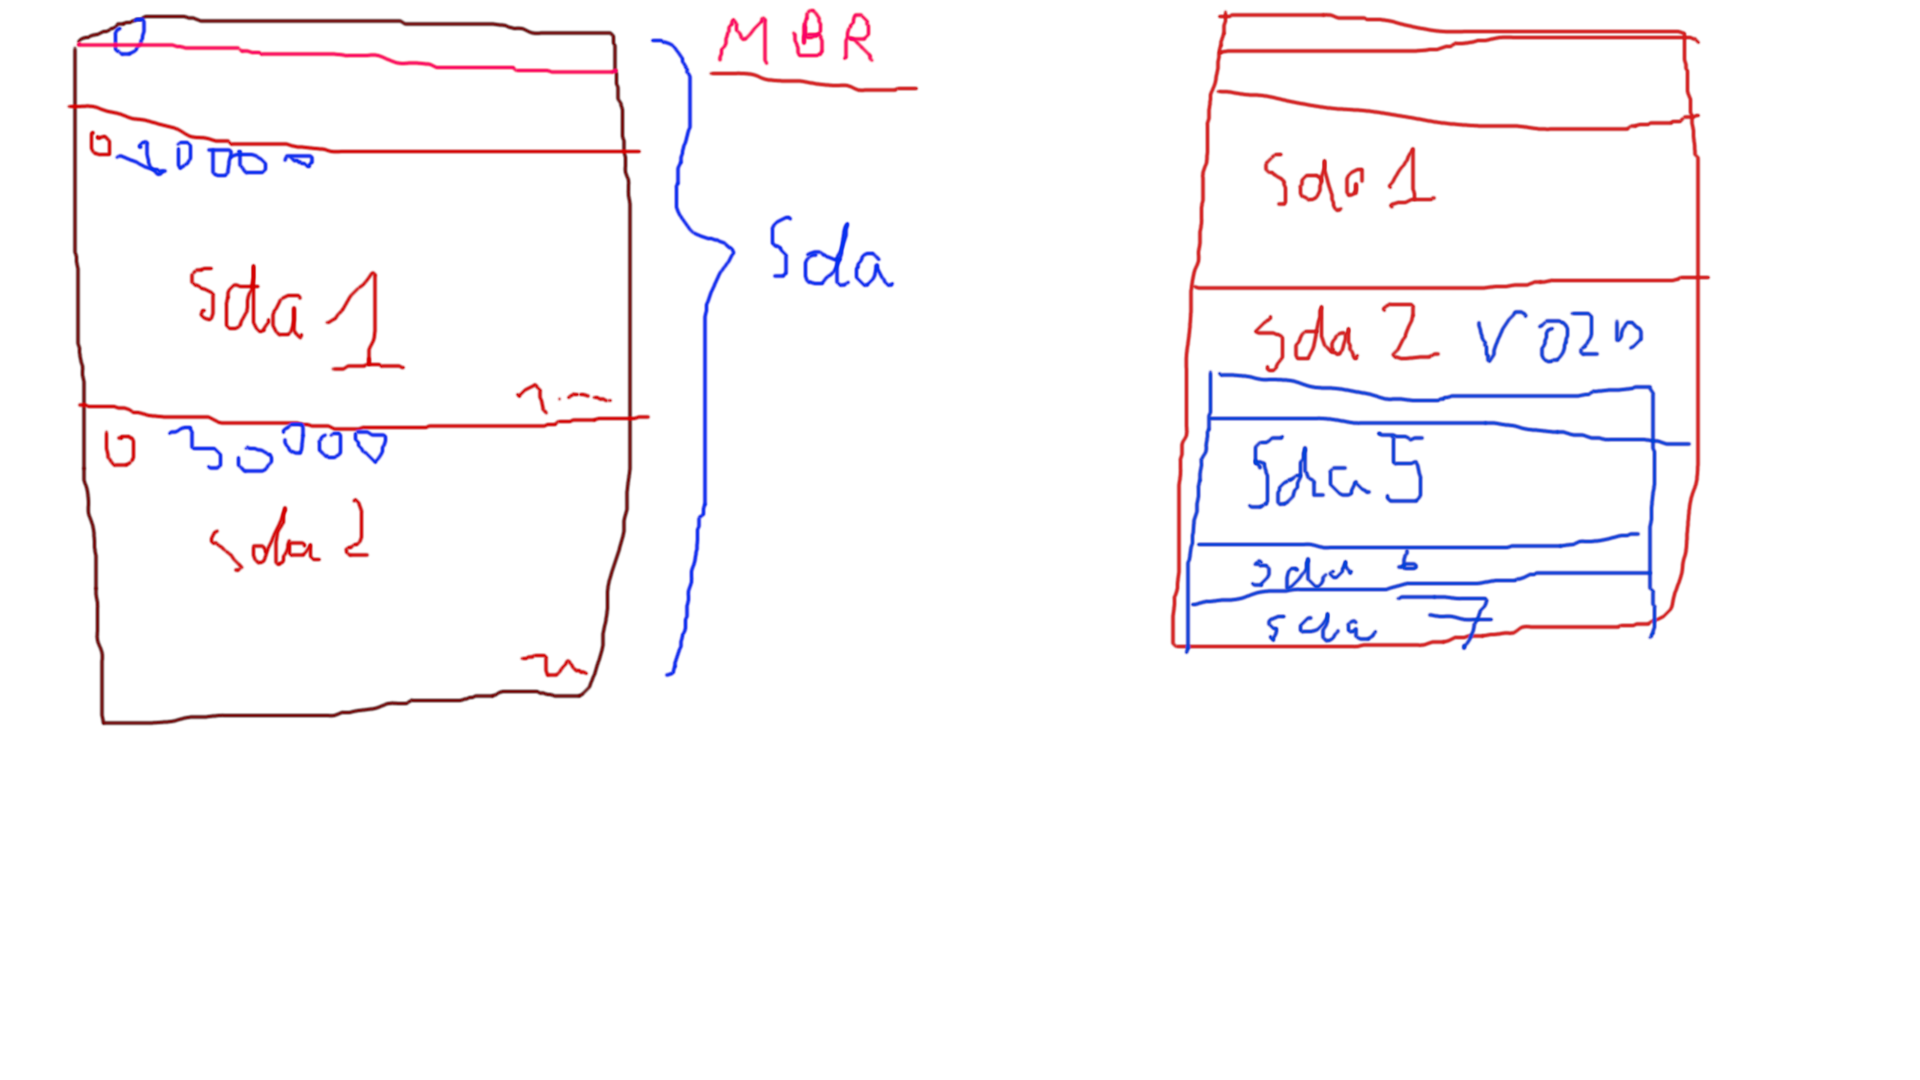 MBR
0
0 10000
sda
sda 1
0 30000
sda 2
sda 1
sda 2
sda 5
sda 6
sda 7